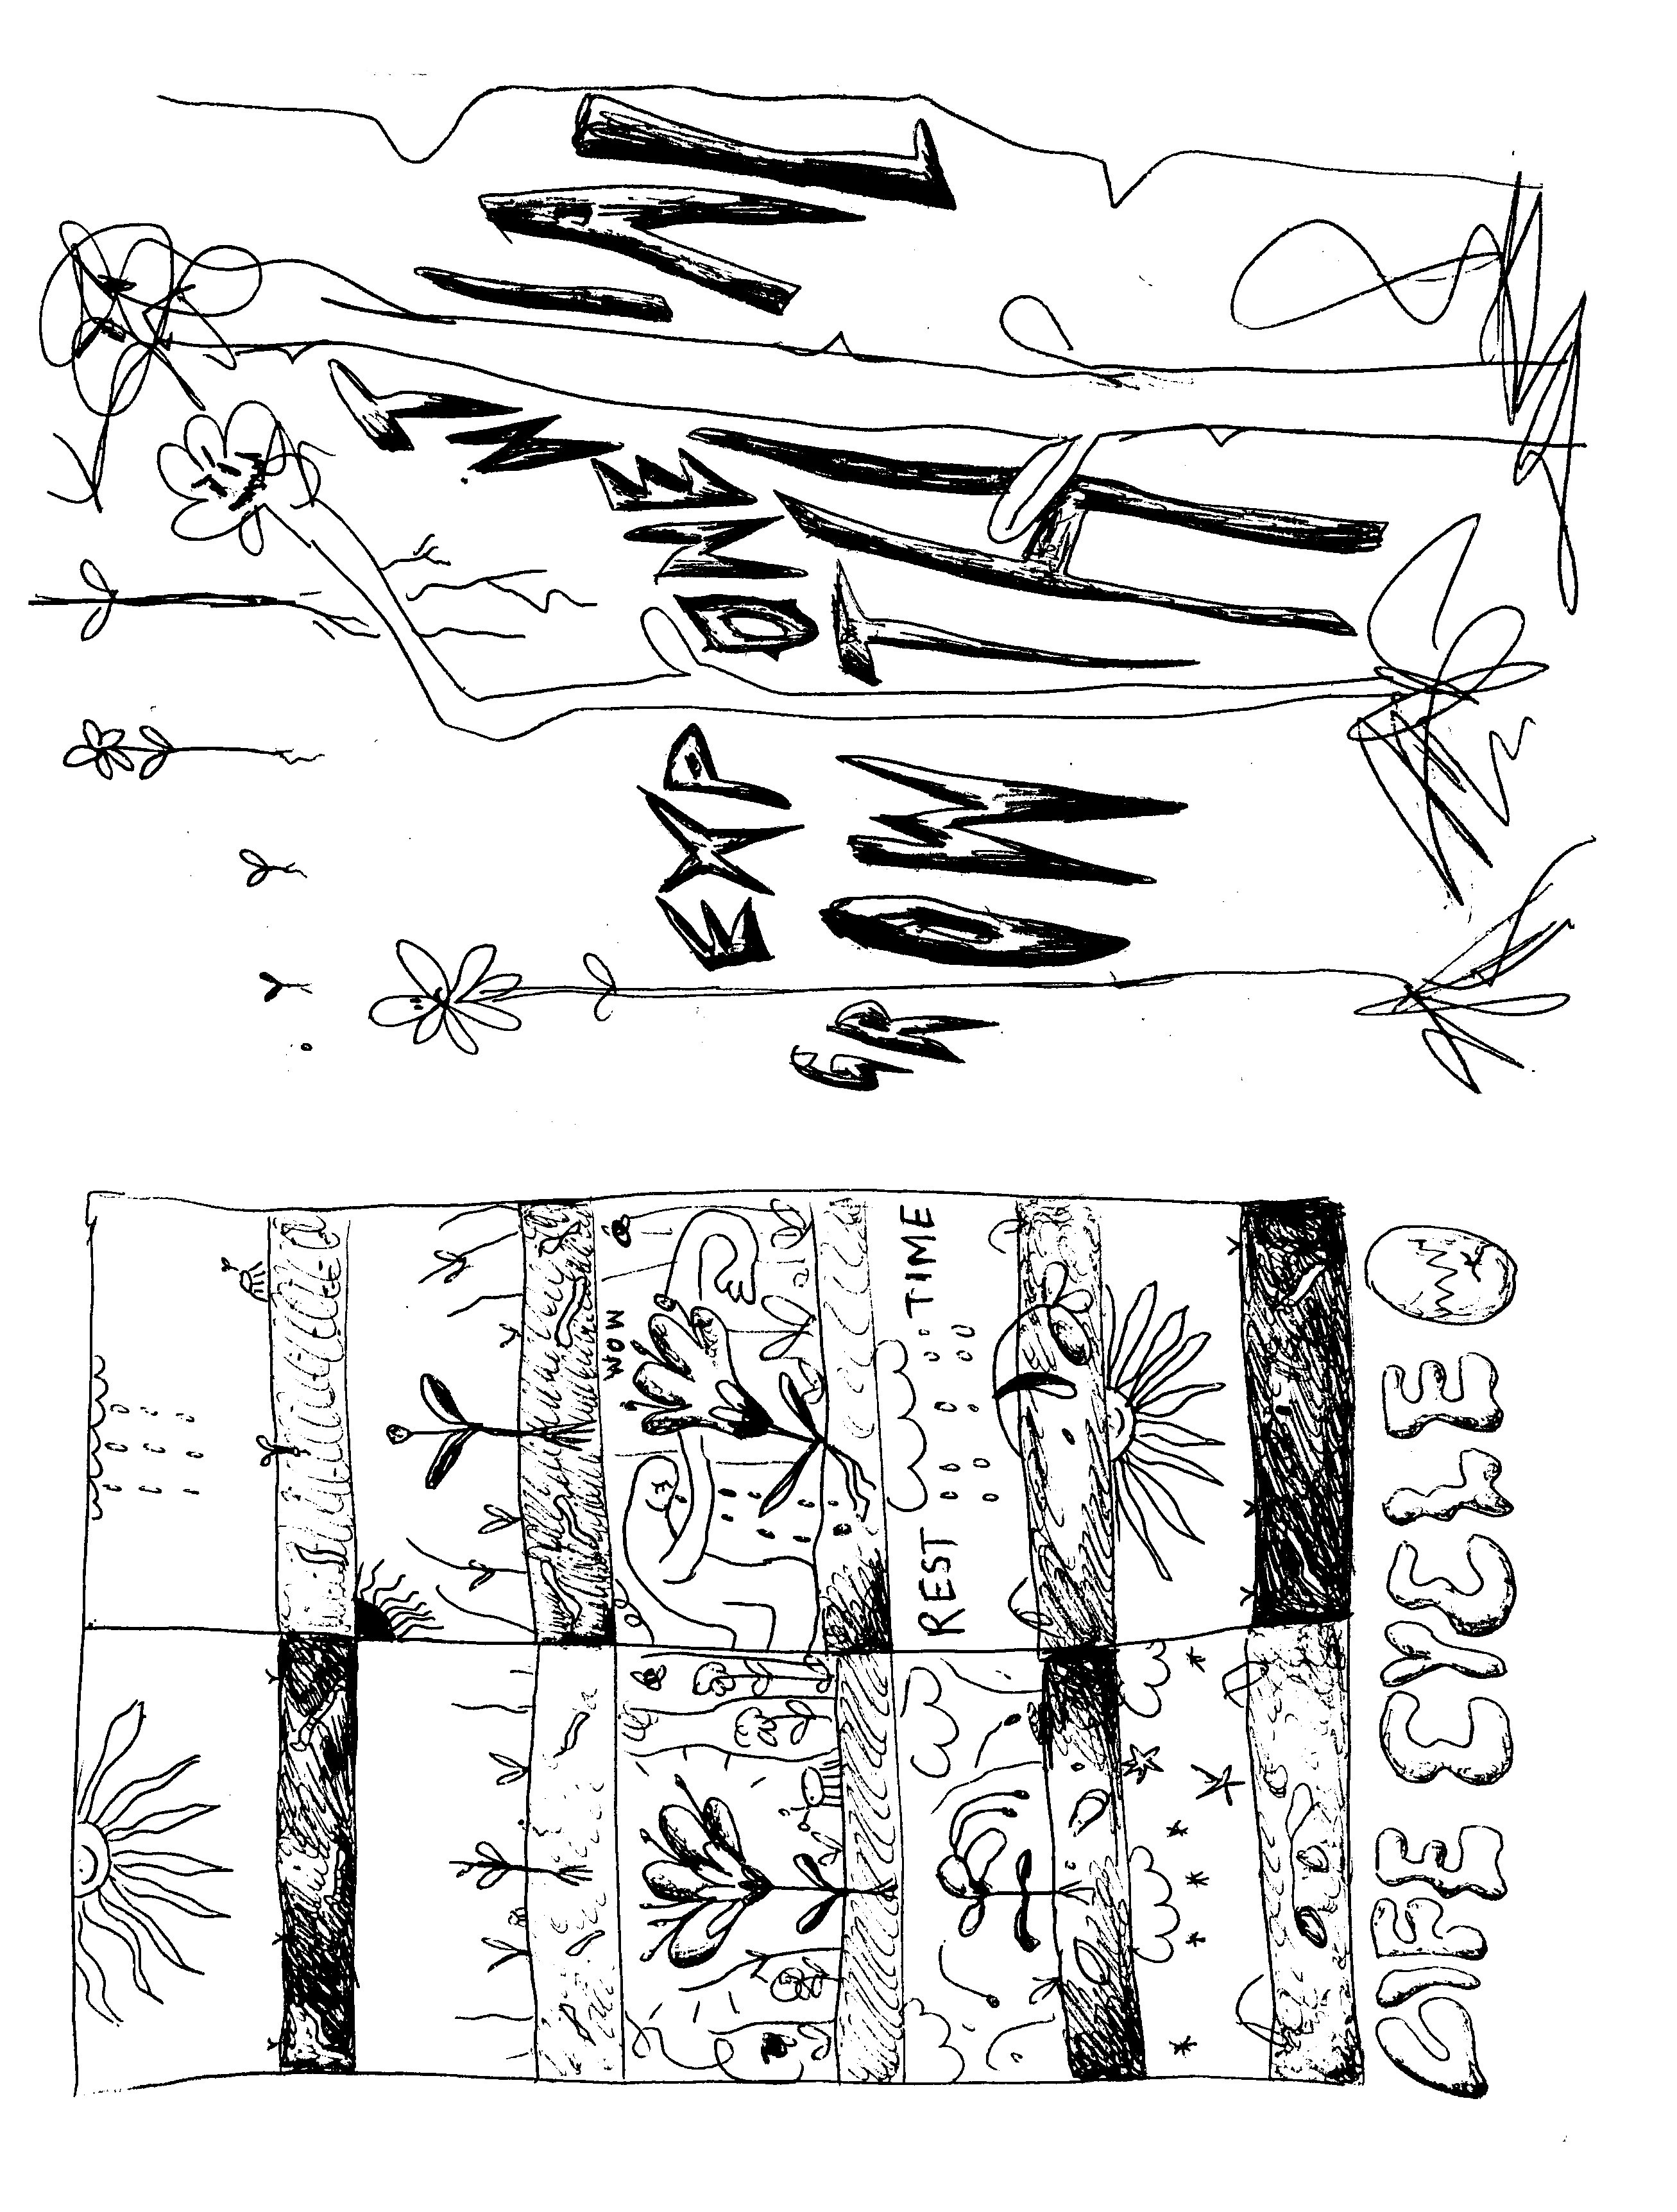 WOW
REST TIME
LIFE CYCLE
EXPONENTIAL
GROWTH